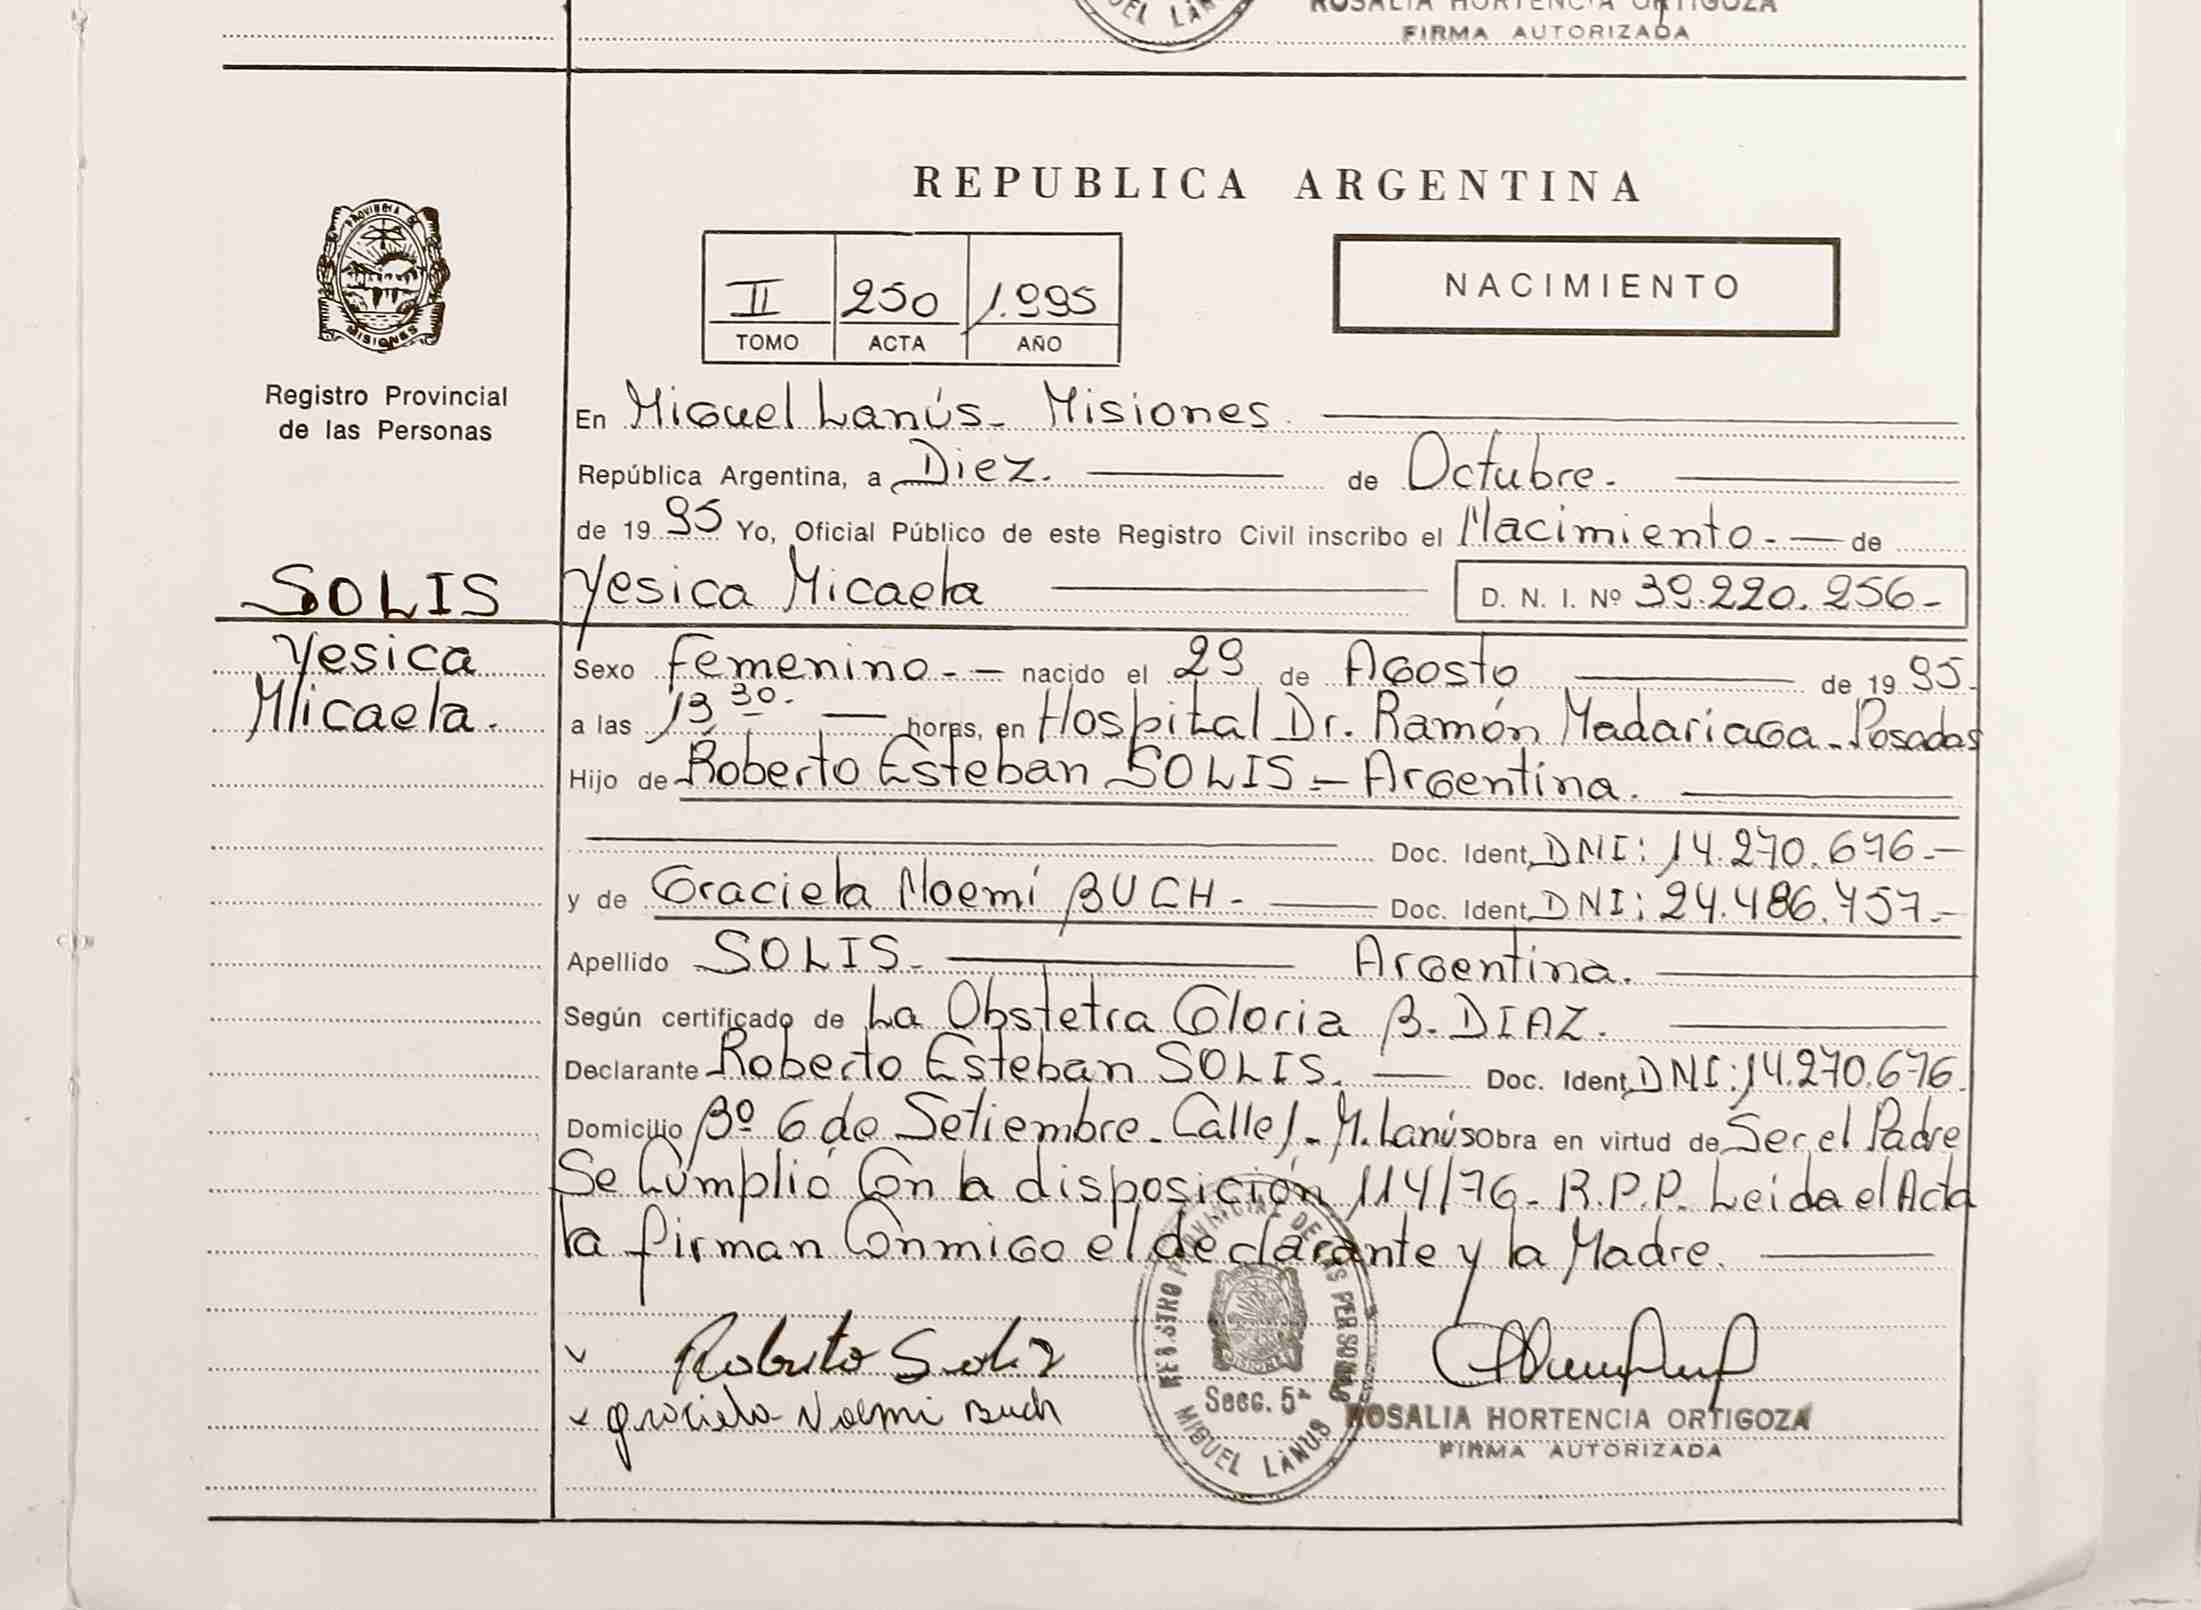 ROSALIA HORTENCIA ORTIGOZA
FIRMA AUTORIZADA
MIGUEL LANUS
REPUBLICA ARGENTINA
PROVINCIA DE
MISIONES
Registro Provincial
de las Personas
II 250 1.995
TOMO ACTA AÑO
NACIMIENTO
En Miguel Lanús - Misiones.
República Argentina, a Diez. de Octubre.
de 1995 Yo, Oficial Público de este Registro Civil inscribo el Nacimiento. - de
SOLIS Yesica Micaela D. N. I. Nº 39.220.256-
Yesica
Micaela.
Sexo Femenino. - nacido el 29 de Agosto de 1995.
a las 13 30. horas, en Hospital Dr. Ramón Madariaga - Posadas
Hijo de Roberto Esteban SOLIS - Argentina.
Doc. Ident. DNI: 14.270.676.-
y de Graciela Noemí BUCH - Doc. Ident. DNI: 24.486.457.-
Apellido SOLIS - Argentina.
Según certificado de La Obstetra Gloria B. DIAZ.
Declarante Roberto Esteban SOLIS. Doc. Ident. DNI: 14.270.676.
Domicilio Bº 6 de Setiembre - Calle 1 - M. Lanús obra en virtud de Ser el Padre
Se Cumplió Con la disposición 114/76 - R.P.P. Leida el Acta
la firman Conmigo el declarante y la Madre.
Roberto Solis
Graciela Noemi Buch
REGISTRO PROVINCIAL DE LAS PERSONAS
MISIONES
Secc. 5ª
MIGUEL LANUS
ROSALIA HORTENCIA ORTIGOZA
FIRMA AUTORIZADA